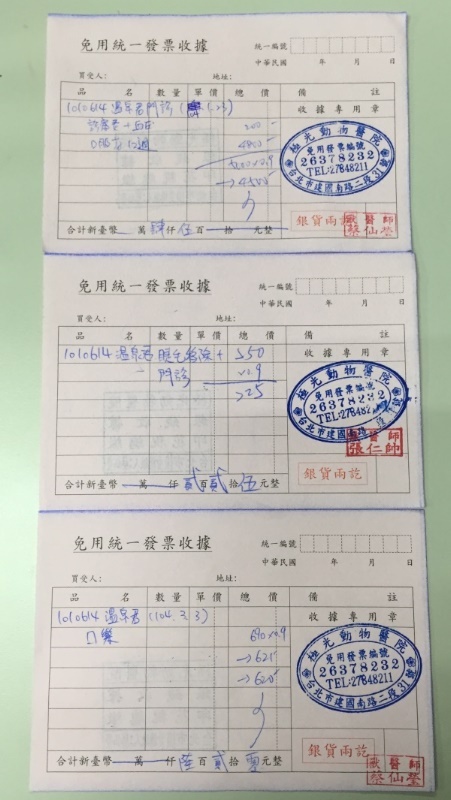 免用統一發票收據
統一編號
中華民國 年 月 日
買受人: 地址:
品名 數量 單價 總價 備註
收據專用章
1010614 溫泉君 門診
4500
極光動物醫院
免用發票編號
26378232
TEL:27848211
台北市建國南路二段31號
銀貨兩訖
獸醫師
蔡仙瑩
合計新臺幣 萬 肆仟 伍百 拾 元整
免用統一發票收據
統一編號
中華民國 年 月 日
買受人: 地址:
品名 數量 單價 總價 備註
收據專用章
1010614 溫泉君 +
門診 x0.9
225
極光動物醫院
免用發票編號
26378232
台北市建國南路
獸醫師
張仁帥
銀貨兩訖
合計新臺幣 萬 仟 貳百 貳拾 伍元整
免用統一發票收據
統一編號
中華民國 年 月 日
買受人: 地址:
品名 數量 單價 總價 備註
收據專用章
1010614 溫泉君 (104.3.3)
口藥 690x0.9
→621
→620
極光動物醫院
免用發票編號
26378232
TEL:27848211
台北市建國南路二段31號
銀貨兩訖
獸醫師
蔡仙瑩
合計新臺幣 萬 仟 陸百 貳拾 零元整